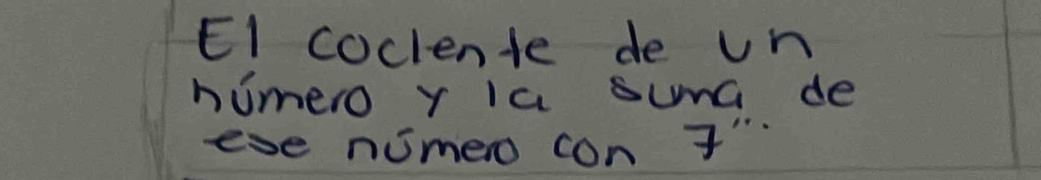 El coclente de un
número y la suma de
ese número con 7".